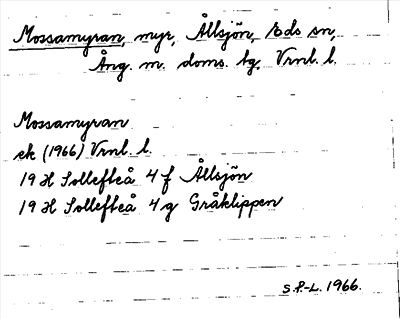 Mossamyran, myr, Ållsjön, Eds sn,
Ång. m. doms. lg, Vrnl. l.
Mossamyran
ek (1966) Vrnl. l.
19 H Sollefteå 4 f Ållsjön
19 H Sollefteå 4 g Gråklippen
S.P.-L. 1966.